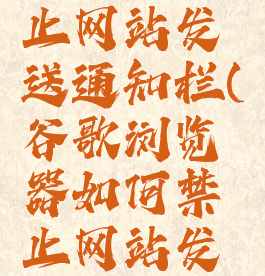 止网站发
送通知栏(
谷歌浏览
器如何禁
止网站发